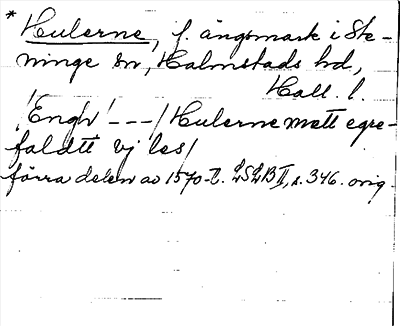 * Hulerne, f. ängsmark i Ste-
ninge sn, Halmstads hd,
Hall. l.
/Engh/ --- / Hulerne mett egre-
faldtt vj les/
förra delen av 1570-t. LSLB II, s. 346. orig.